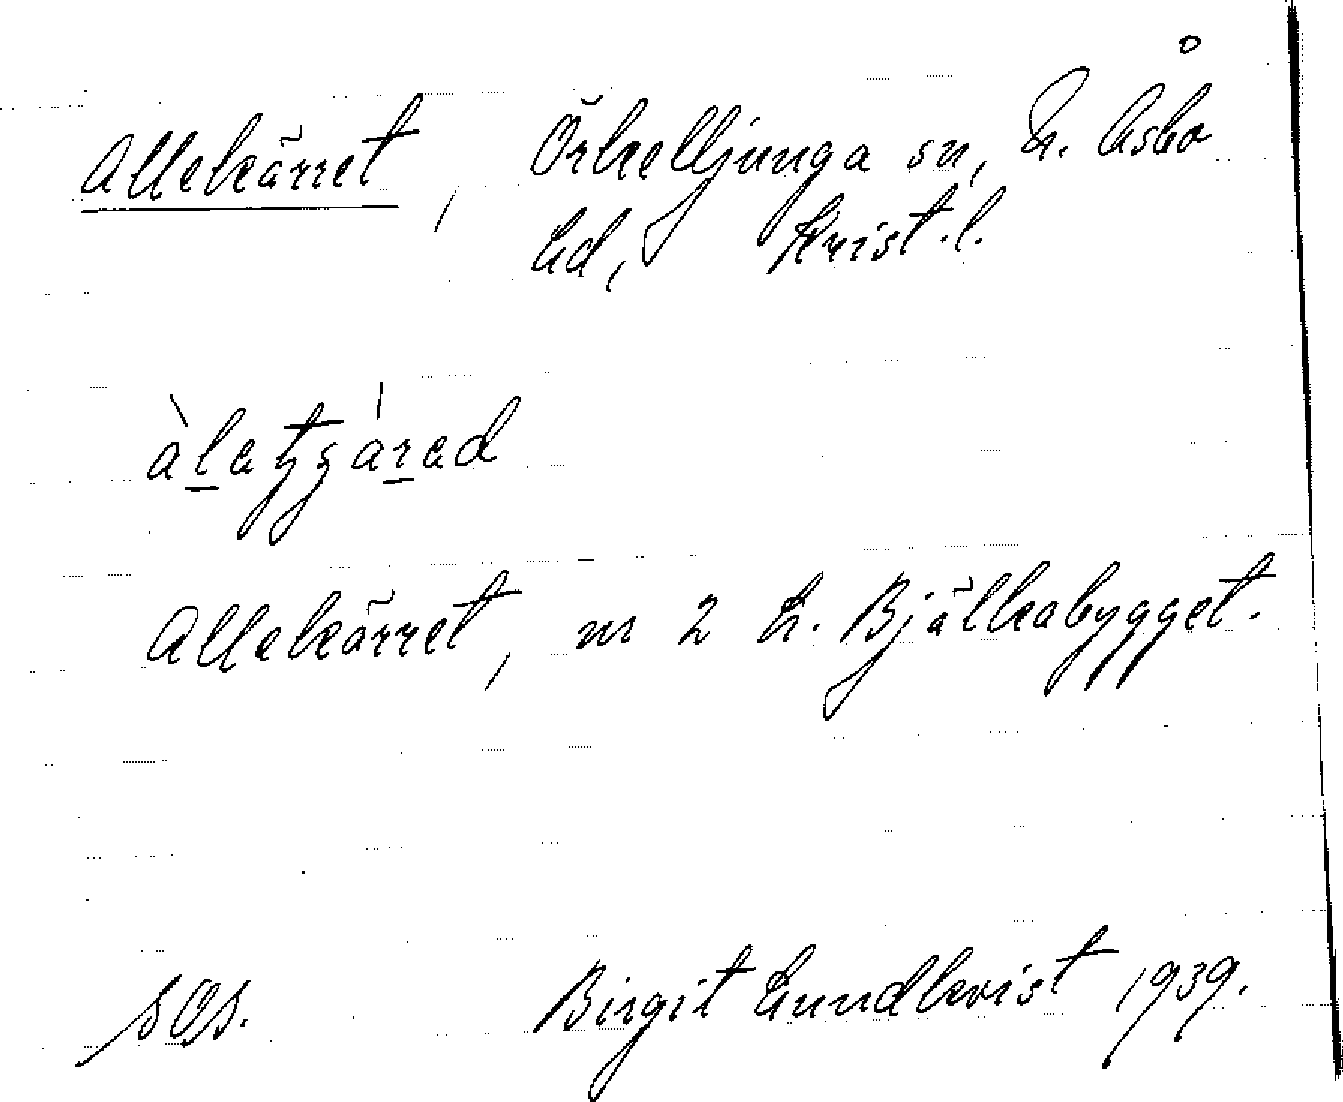 Allekärret, Örkelljunga sn, N. Åsbo
hd, Krist. l.
Allekärret, nr 2 L. Bjälkabygget.
SOS. Birgit Lundkvist 1939.